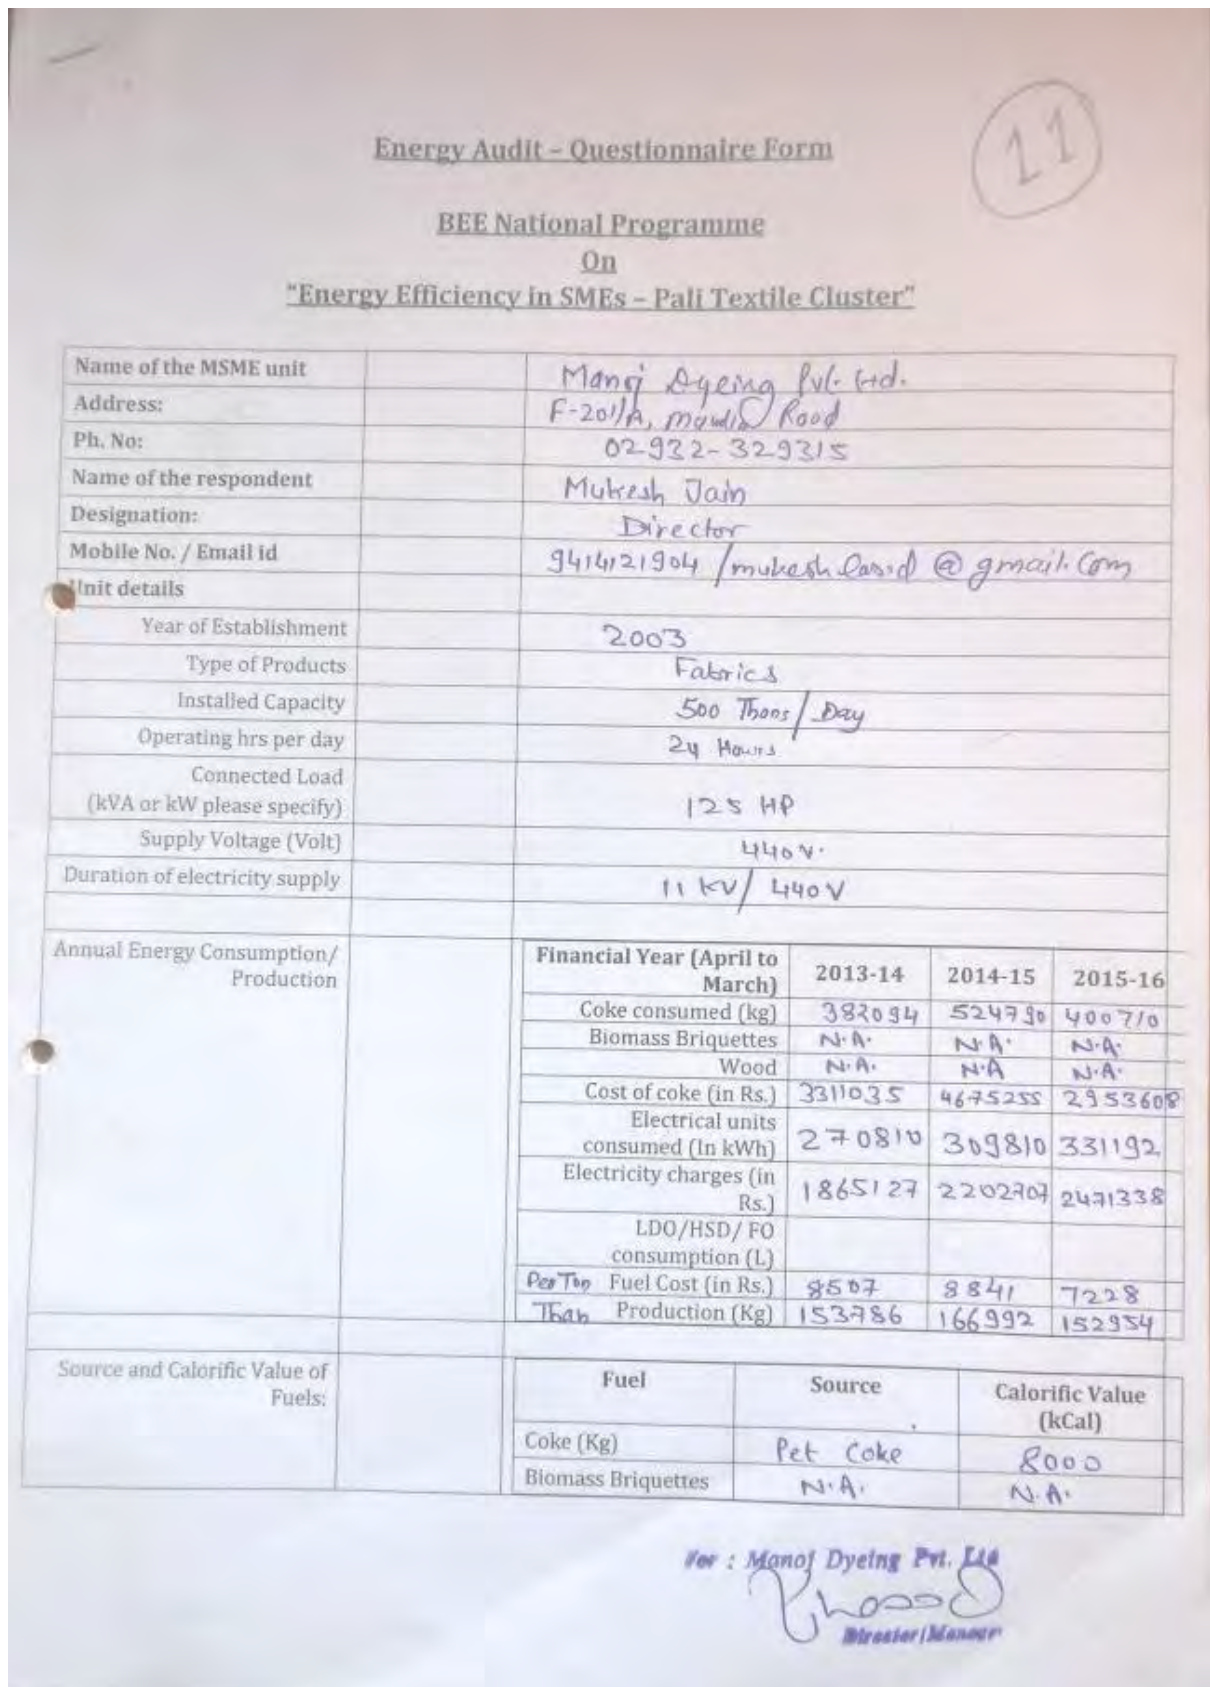 11
Energy Audit – Questionnaire Form
BEE National Programme
On
"Energy Efficiency in SMEs – Pali Textile Cluster"
Name of the MSME unit Manoj Dyeing Pvt. Ltd.
Address: F-201/A, Mandia Road
Ph. No: 02932-329315
Name of the respondent Mukesh Jain
Designation: Director
Mobile No. / Email id 9414121904 / @ gmail.com
Unit details
Year of Establishment 2003
Type of Products Fabrics
Installed Capacity 500 Thans/Day
Operating hrs per day 24 Hours
Connected Load
(kVA or kW please specify) 125 HP
Supply Voltage (Volt) 440 V.
Duration of electricity supply 11 KV/ 440 V
Annual Energy Consumption/
Production
Financial Year (April to
March) 2013-14 2014-15 2015-16
Coke consumed (kg) 382094 524790 400710
Biomass Briquettes N.A. N.A. N.A.
Wood N.A. N.A N.A.
Cost of coke (in Rs.) 3311035 4675255 2953608
Electrical units
consumed (In kWh) 270810 309810 331192
Electricity charges (in
Rs.) 1865127 2202707 2471338
LDO/HSD/ FO
consumption (L)
Per Ton Fuel Cost (in Rs.) 8507 8841 7228
Than Production (Kg) 153786 166992 152954
Source and Calorific Value of
Fuels:
Fuel Source Calorific Value
(kCal)
Coke (Kg) Pet Coke 8000
Biomass Briquettes N.A. N.A.
For : Manoj Dyeing Pvt. Ltd